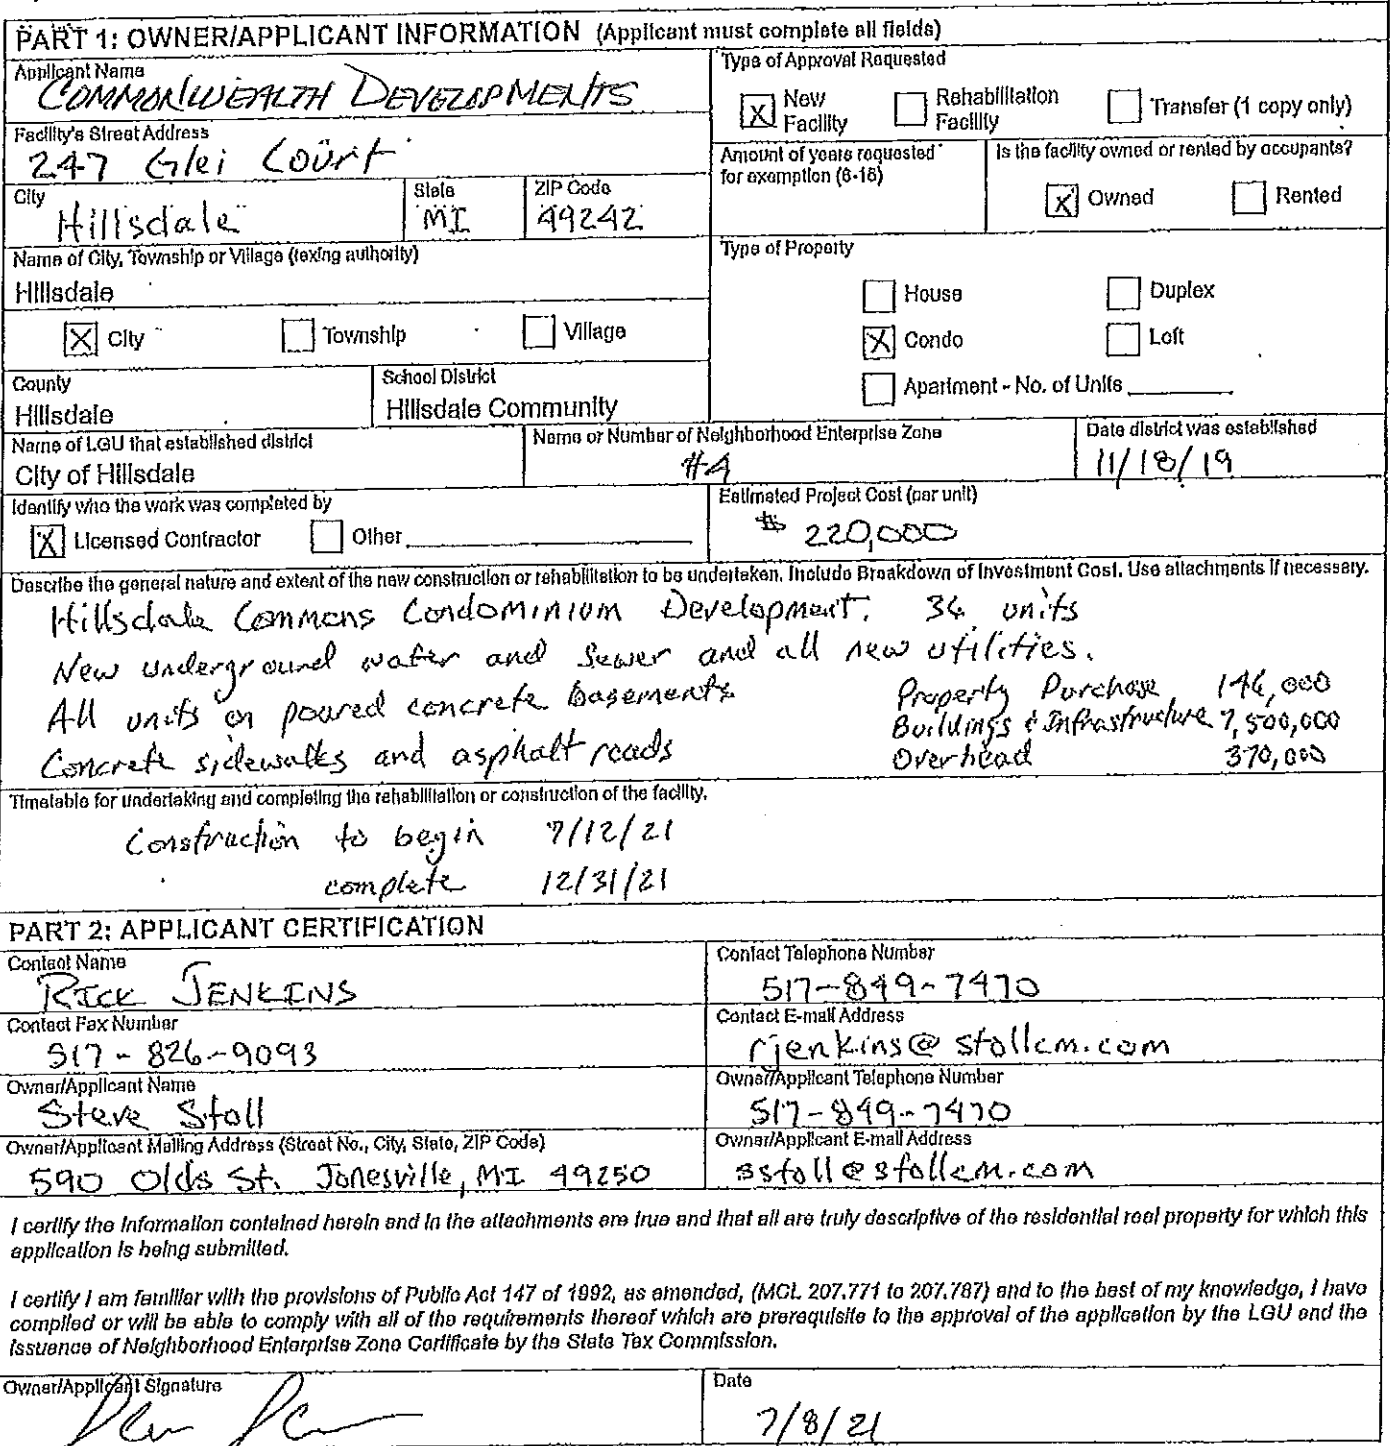 PART 1: OWNER/APPLICANT INFORMATION (Applicant must complete all fields)
Applicant Name
COMMONWEALTH DEVELOPMENTS
Type of Approval Requested
X New Facility
Rehabilitation Facility
Transfer (1 copy only)
Facility's Street Address
247 Glei Court
Amount of years requested for exemption (6-15)
Is the facility owned or rented by occupants?
X Owned
Rented
City
Hillsdale
State
MI
ZIP Code
49242
Name of City, Township or Village (taxing authority)
Hillsdale
X City
Township
Village
Type of Property
House
Duplex
X Condo
Loft
Apartment - No. of Units
County
Hillsdale
School District
Hillsdale Community
Name of LGU that established district
City of Hillsdale
Name or Number of Neighborhood Enterprise Zone
#4
Date district was established
11/18/19
Identify who the work was completed by
X Licensed Contractor
Other
Estimated Project Cost (per unit)
$ 220,000
Describe the general nature and extent of the new construction or rehabilitation to be undertaken. Include Breakdown of Investment Cost. Use attachments if necessary.
Hillsdale Commons Condominium Development. units
New underground water and sewer and all new utilities.
All units on poured concrete basements
Concrete sidewalks and asphalt roads
Property Purchase 146,000
Buildings & Infrastructure 7,500,000
Overhead 370,000
Timetable for undertaking and completing the rehabilitation or construction of the facility.
Construction to begin 7/12/21
complete 12/31/21
PART 2: APPLICANT CERTIFICATION
Contact Name
RICK JENKINS
Contact Telephone Number
517-849-7470
Contact Fax Number
517-826-9093
Contact E-mail Address
rjenkins@stollcm.com
Owner/Applicant Name
Steve Stoll
Owner/Applicant Telephone Number
517-849-7470
Owner/Applicant Mailing Address (Street No., City, State, ZIP Code)
590 Olds St. Jonesville, MI 49250
Owner/Applicant E-mail Address
sstoll@stollcm.com
I certify the information contained herein and in the attachments are true and that all are truly descriptive of the residential real property for which this
application is being submitted.
I certify I am familiar with the provisions of Public Act 147 of 1992, as amended, (MCL 207.771 to 207.787) and to the best of my knowledge, I have
complied or will be able to comply with all of the requirements thereof which are prerequisite to the approval of the application by the LGU and the
issuance of Neighborhood Enterprise Zone Certificate by the State Tax Commission.
Owner/Applicant Signature
Date
7/8/21